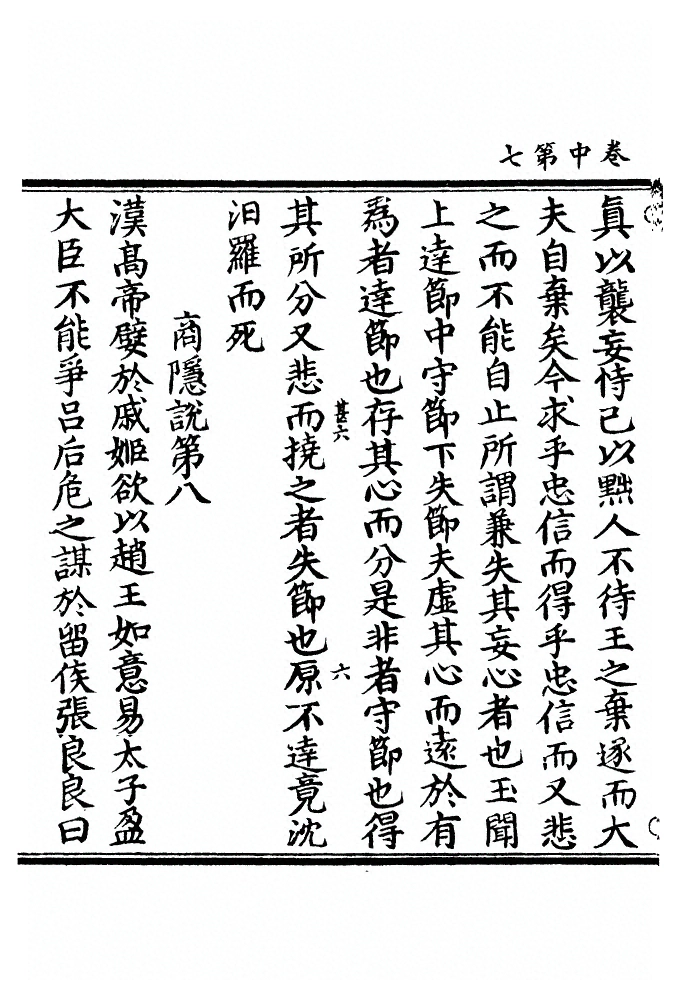 卷中第七
真以襲妄恃己以黜人不待王之棄逐而大
夫自棄矣今求乎忠信而得乎忠信而又悲
之而不能自止所謂兼失其妄心者也玉聞
上達節中守節下失節夫虛其心而遠於有
為者達節也存其心而分是非者守節也得
其所分又悲而撓之者失節也原不達竟沈
甚六
六
汨羅而死
商隱說第八
漢高帝嬖於戚姬欲以趙王如意易太子盈
大臣不能爭呂后危之謀於留侯張良良曰